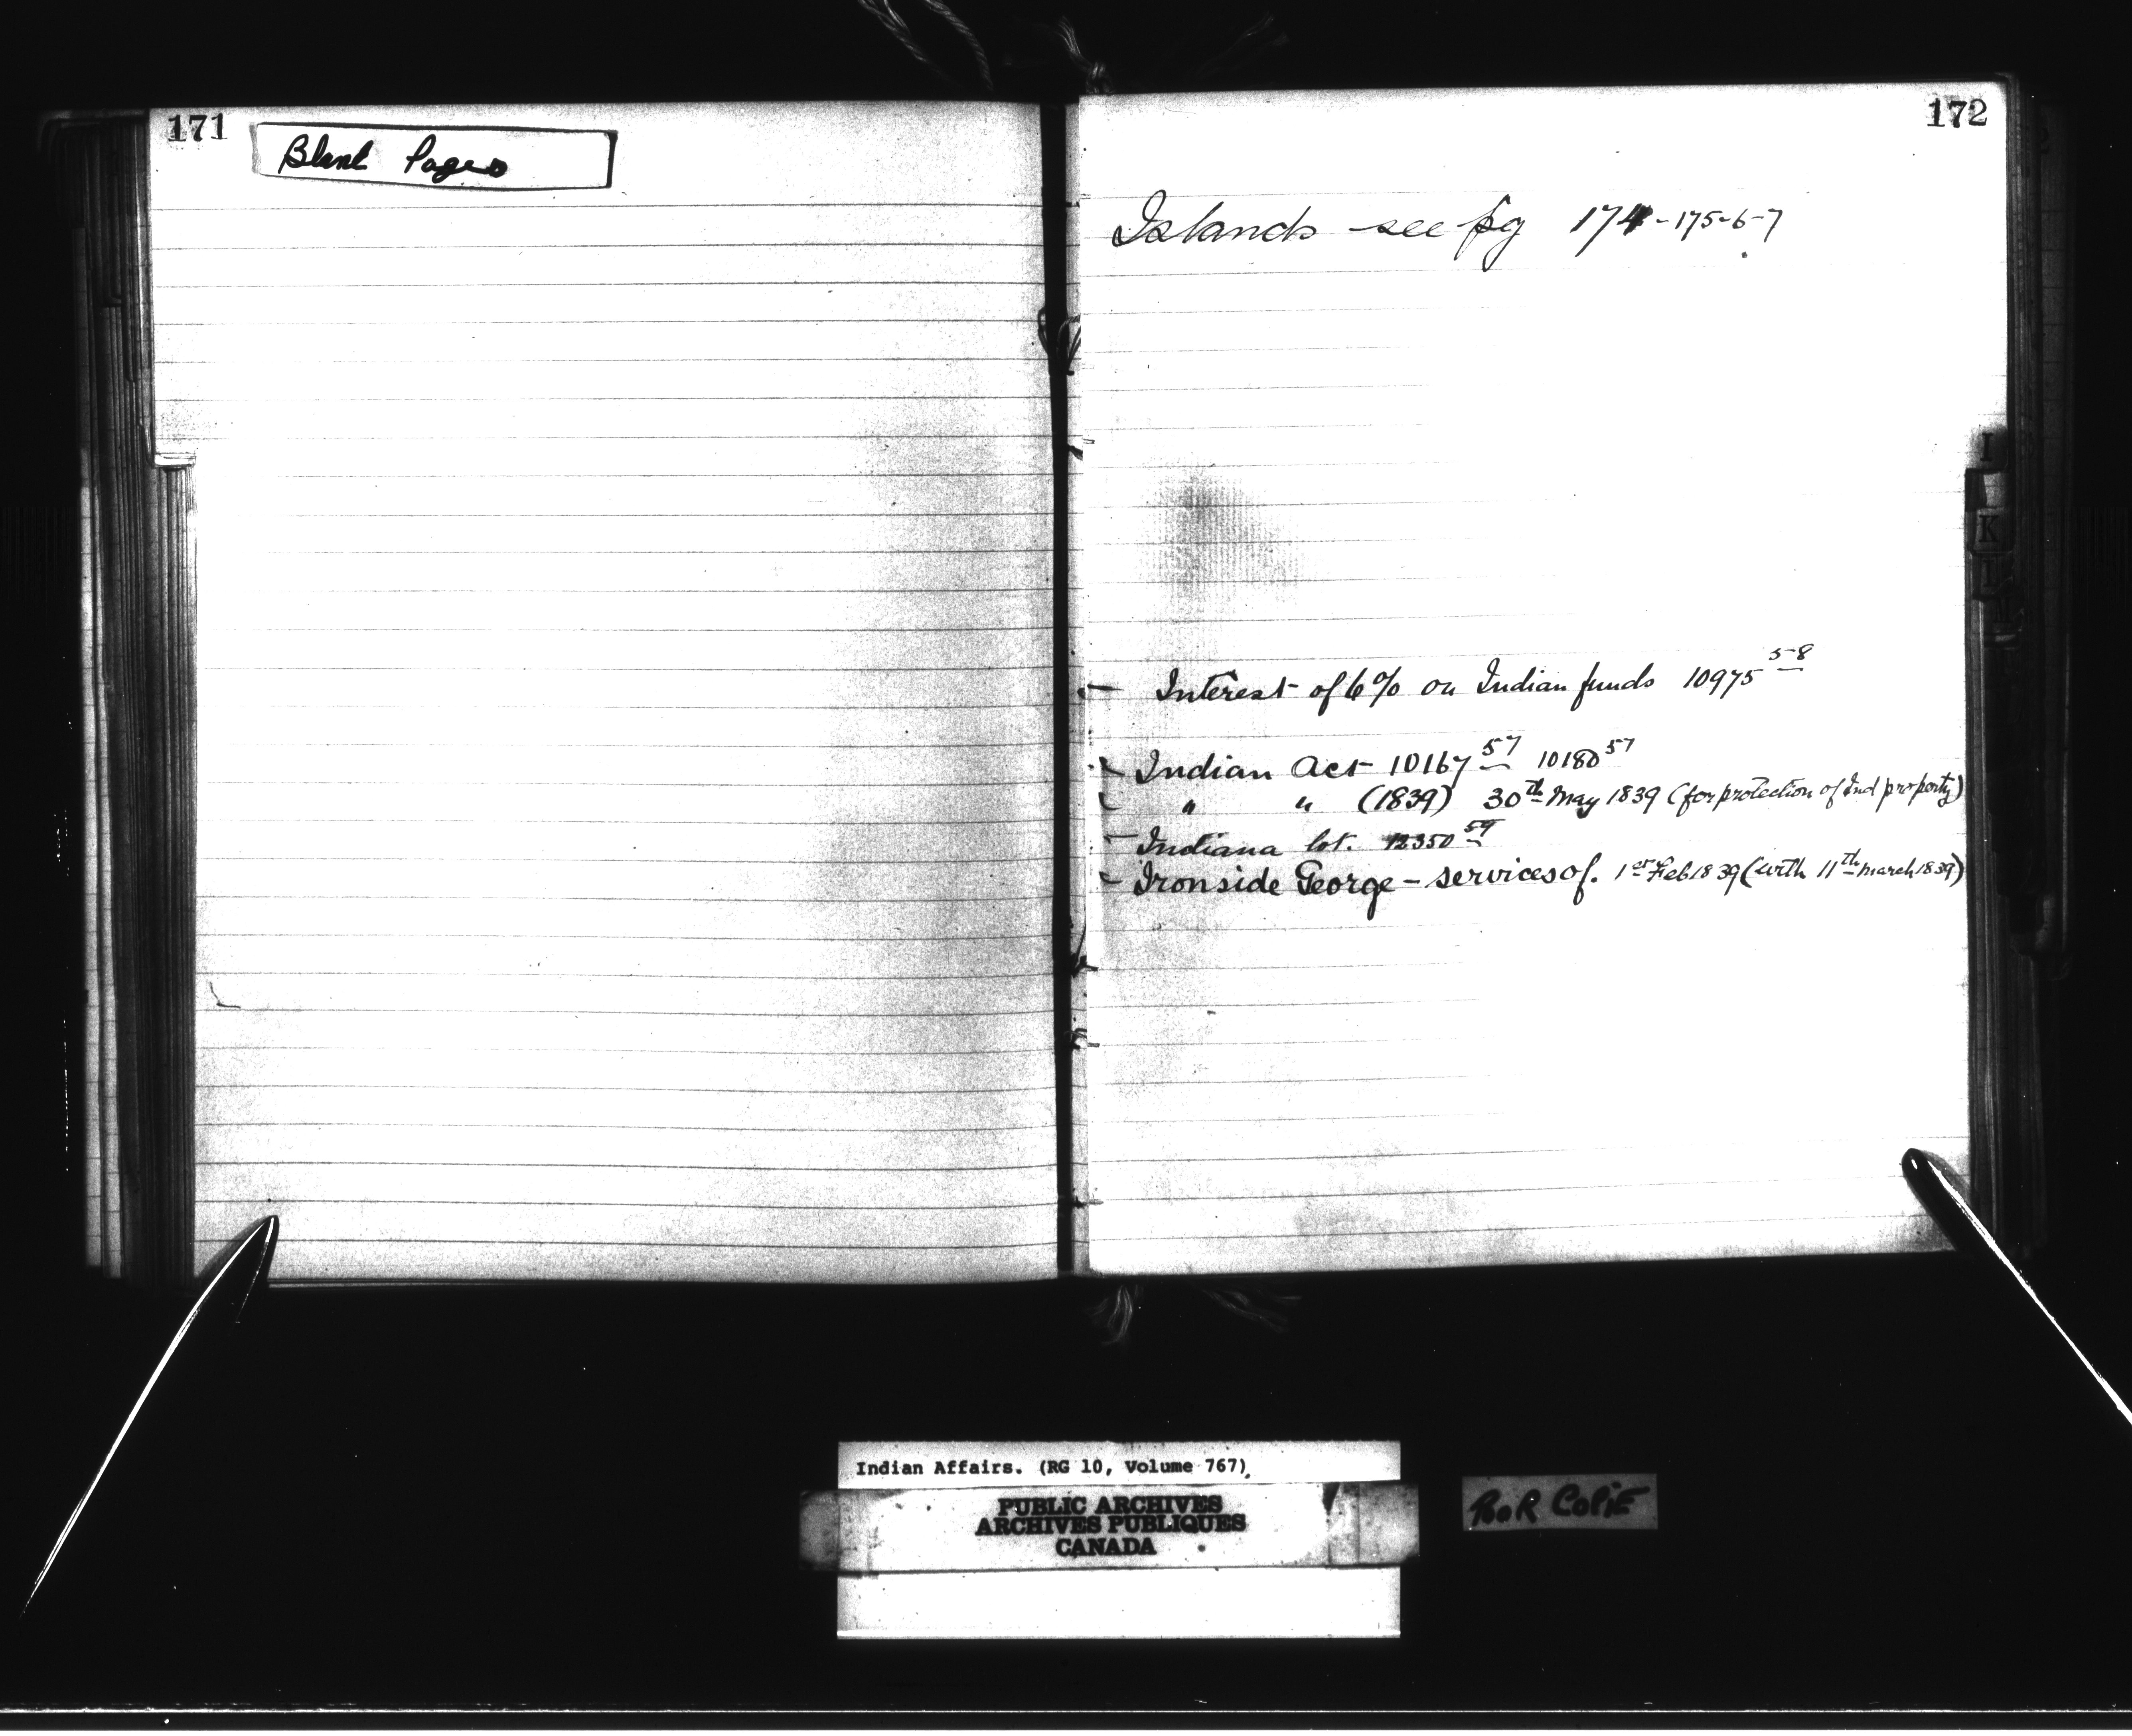 171
Blank Pages
172
Islands see pg 174-175-6-7
Interest of 6% on Indian funds 10975 58
Indian Act 10167 57 10180 57
" " (1839) 30th May 1839 (for protection of Ind property)
Indiana lot. 12350 59
Ironside George - services of. 1st Feb 1839 (with 11th march 1839)
I
K
L
M
Indian Affairs. (RG 10, Volume 767)
PUBLIC ARCHIVES
ARCHIVES PUBLIQUES
CANADA
POOR COPIE